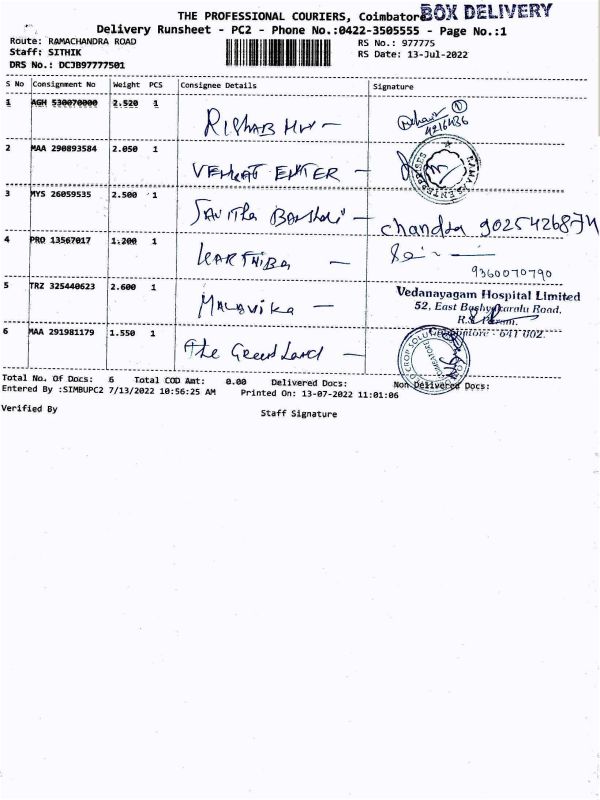 THE PROFESSIONAL COURIERS, Coimbatore
BOX DELIVERY
Delivery Runsheet - PC2 - Phone No.:0422-3505555 - Page No.:1
Route: RAMACHANDRA ROAD
RS No.: 977775
Staff: SITHIK
RS Date: 13-Jul-2022
DRS No.: DCJB97777501
S No Consignment No Weight PCS Consignee Details Signature
1 AGH 530070000 2.520 1
2 MAA 290893584 2.050 1
3 MYS 26059535 2.500 1
chandra 9025426874
4 PRO 13567017 1.200 1
9360070790
5 TRZ 325440623 2.600 1 Malavika
Vedanayagam Hospital Limited
52, East Bashyakaralu Road,
R.S. Puram,
Coimbatore - 641 002.
6 MAA 291981179 1.550 1 The Green Land
Total No. Of Docs: 6 Total COD Amt: 0.00 Delivered Docs: Non Delivered Docs:
Entered By :SIMBUPC2 7/13/2022 10:56:25 AM Printed On: 13-07-2022 11:01:06
Verified By
Staff Signature